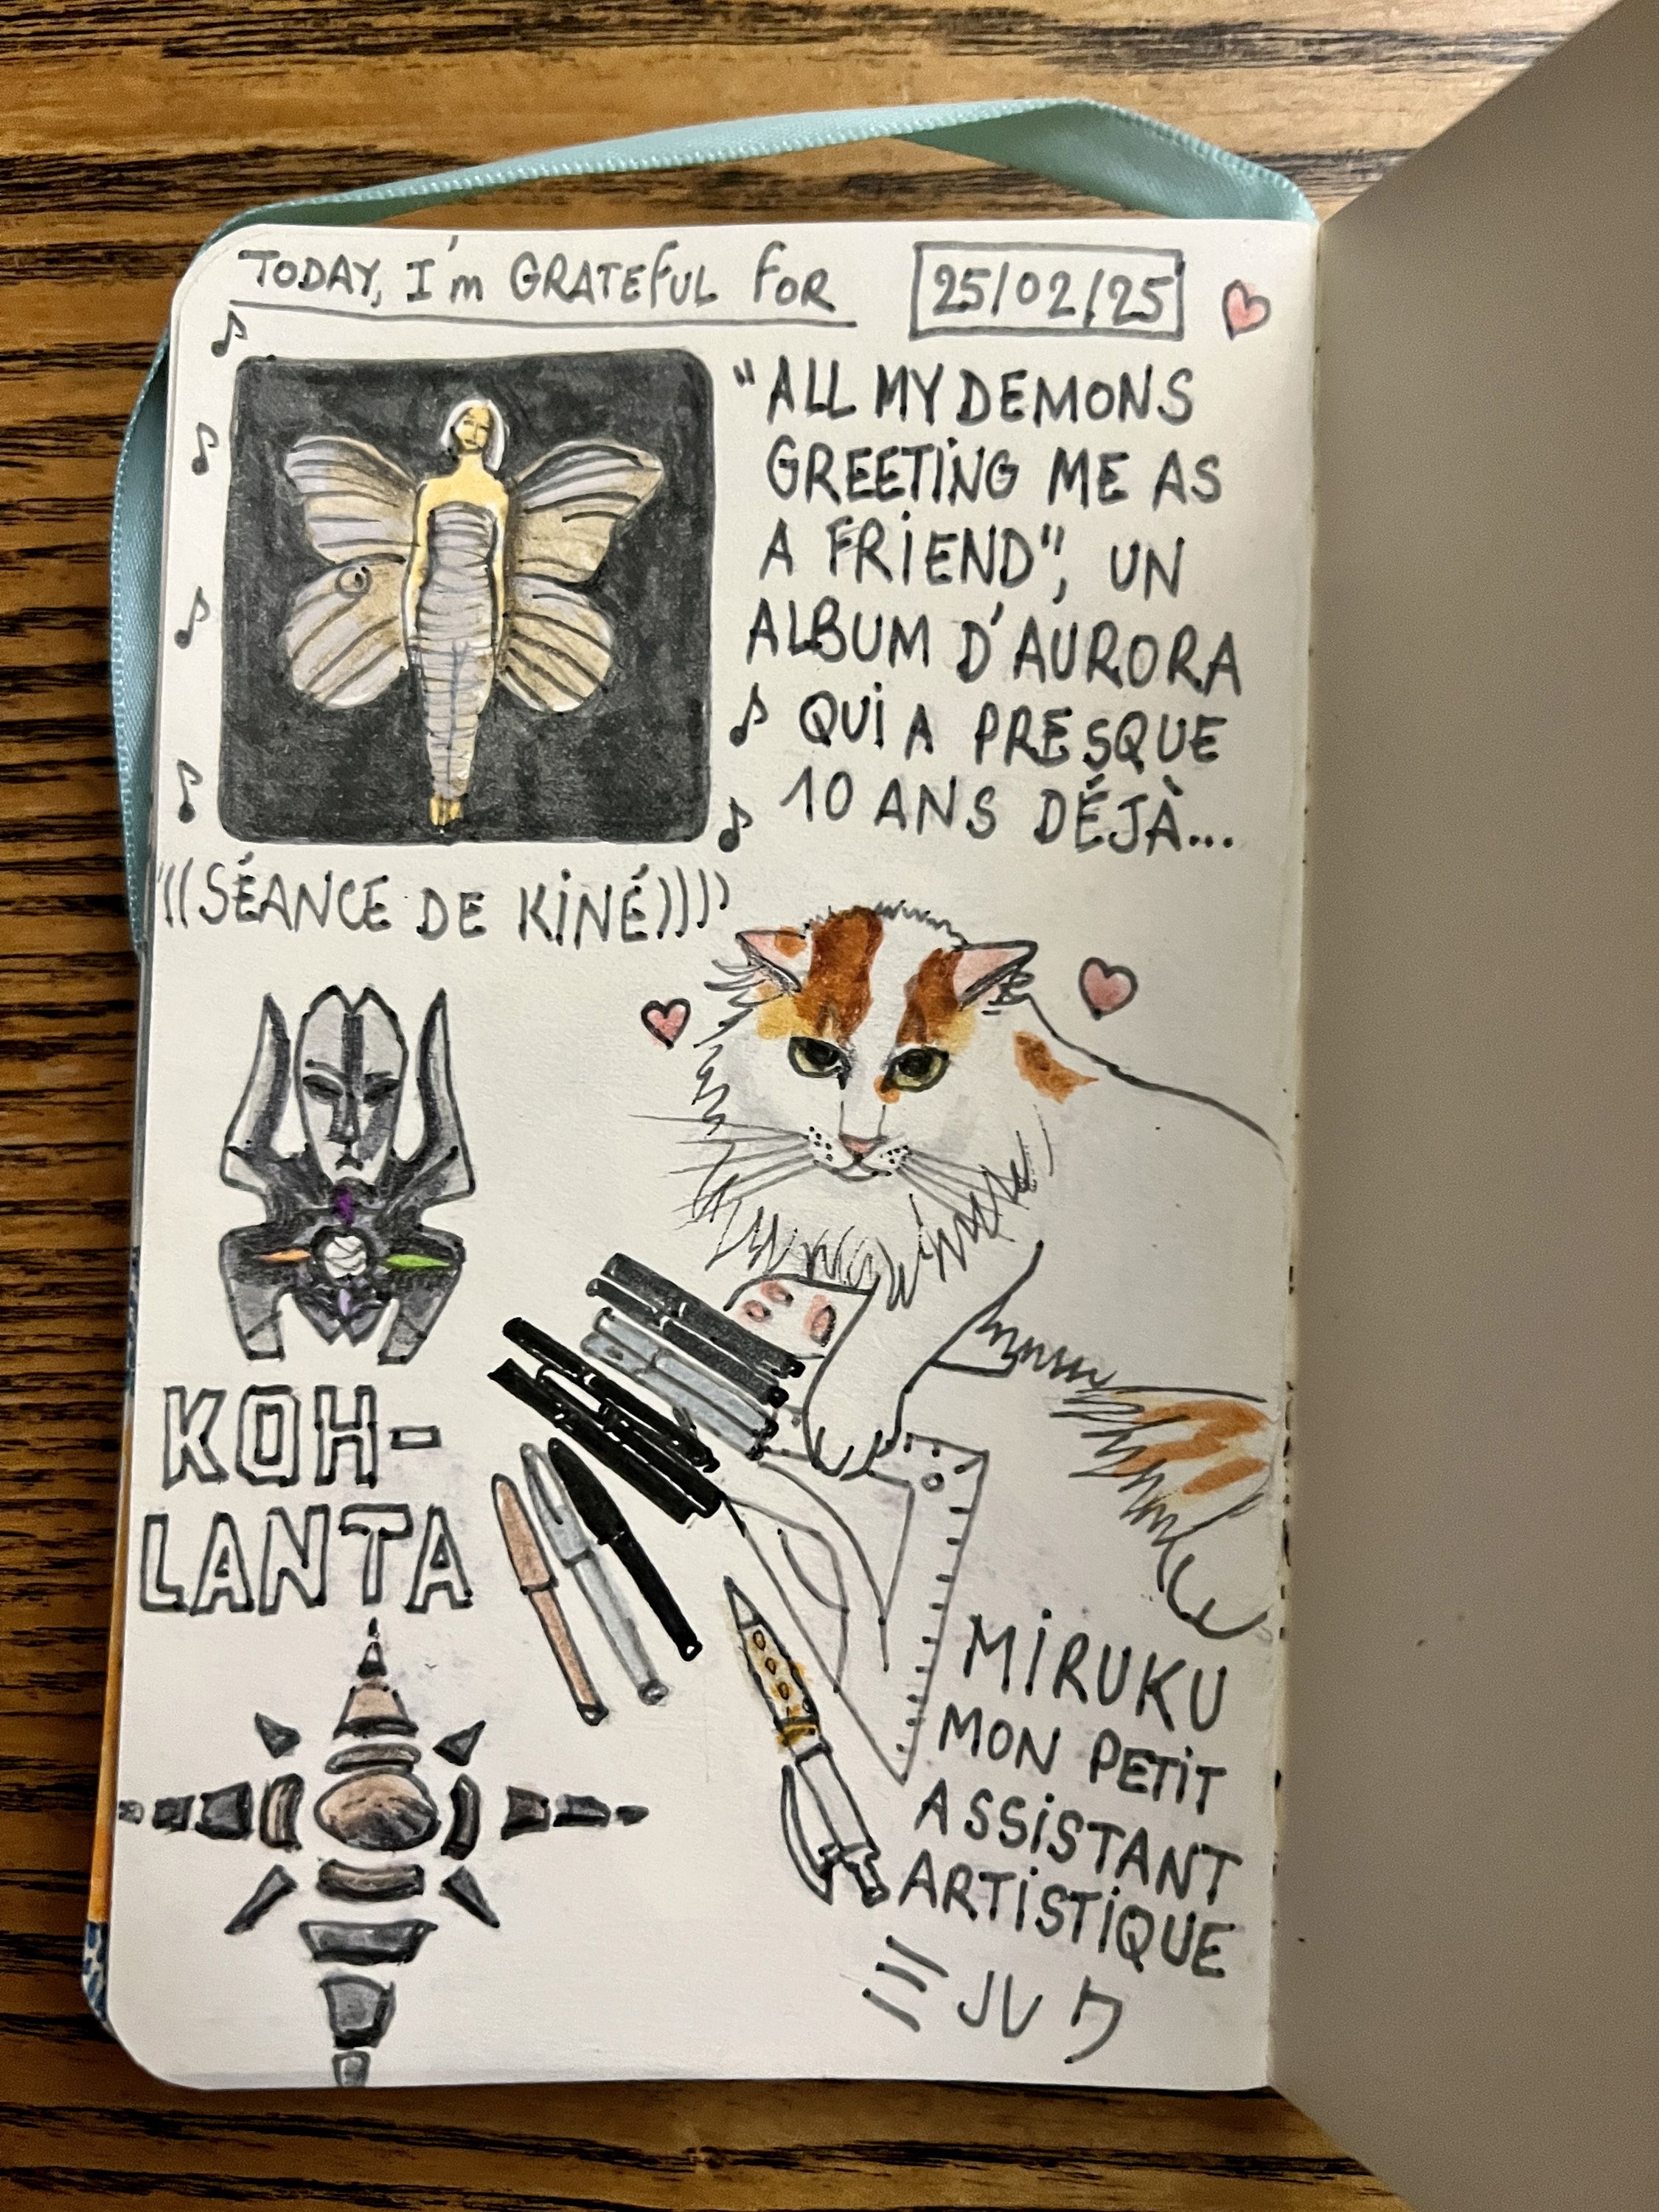 TODAY, I'm GRATEFUL FOR
25/02/25
"ALL MY DEMONS
GREETING ME AS
A FRIEND", UN
ALBUM D'AURORA
QUI A PRESQUE
10 ANS DÉJÀ...
(((SÉANCE DE KINÉ))))
KOH-
LANTA
MIRUKU
MON PETIT
ASSISTANT
ARTISTIQUE
ミルク